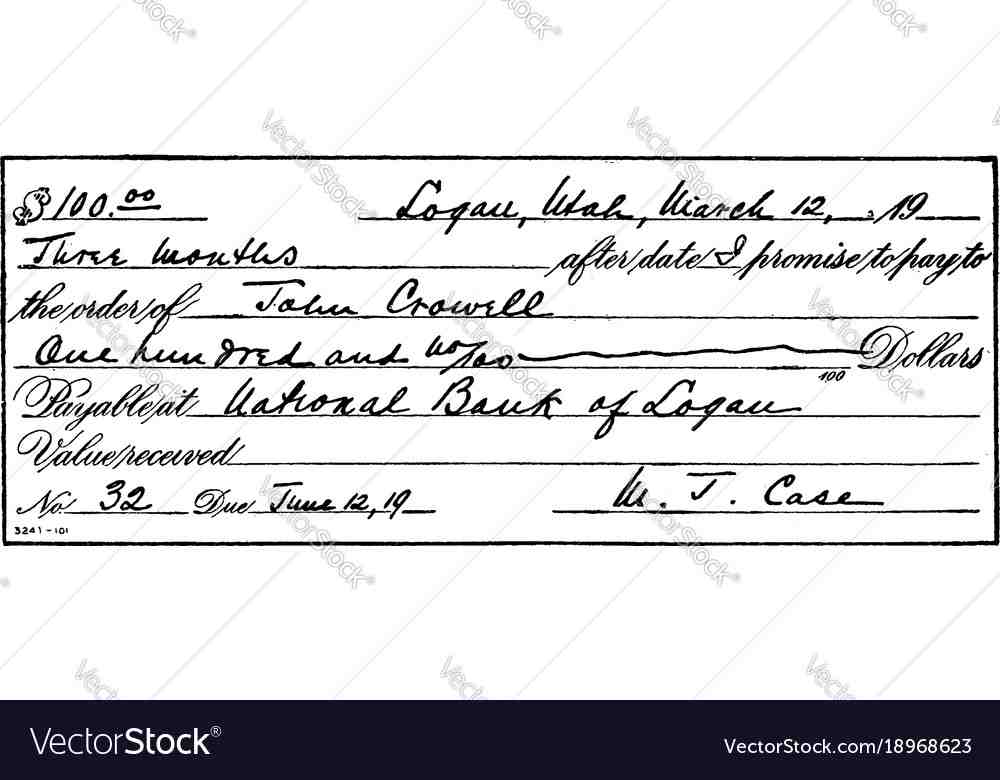 $100.00 Logan, Utah, March 12, 19
Three months after date I promise to pay to
the order of John Crowell
One hundred and no/100 Dollars
100
Payable at National Bank of Logan
Value received
No. 32 Due June 12, 19 M. T. Case
3241-101
VectorStock® VectorStock.com/18968623